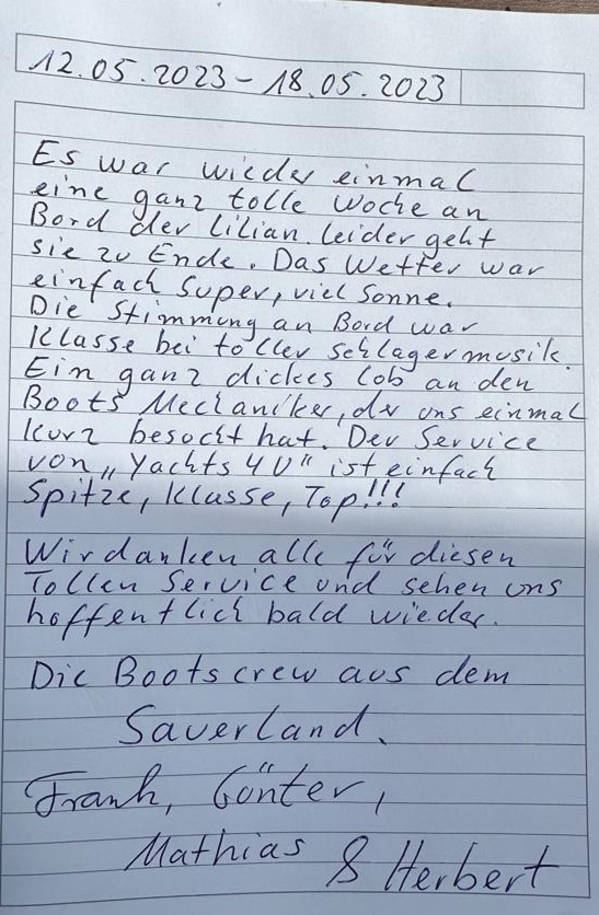 12.05.2023 - 18.05.2023
Es war wieder einmal
eine ganz tolle Woche an
Bord der Lilian. Leider geht
sie zu Ende. Das Wetter war
einfach Super, viel Sonne.
Die Stimmung an Bord war
Klasse bei toller Schlagermusik.
Ein ganz dickes Lob an den
Boots Mechaniker, der uns einmal
kurz besucht hat. Der Service
von „Yachts 4U" ist einfach
Spitze, Klasse, Top!!!
Wir danken alle für diesen
Tollen Service und sehen uns
hoffentlich bald wieder.
Die Bootscrew aus dem
Sauerland.
Frank, Günter,
Mathias & Herbert